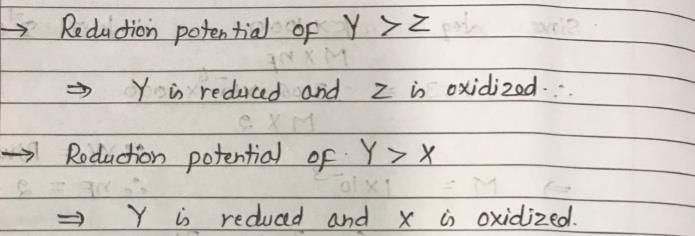 → Reduction potential of Y > Z
⇒ Y is reduced and Z is oxidized. ∴
→ Reduction potential of Y > X
⇒ Y is reduced and X is oxidized.